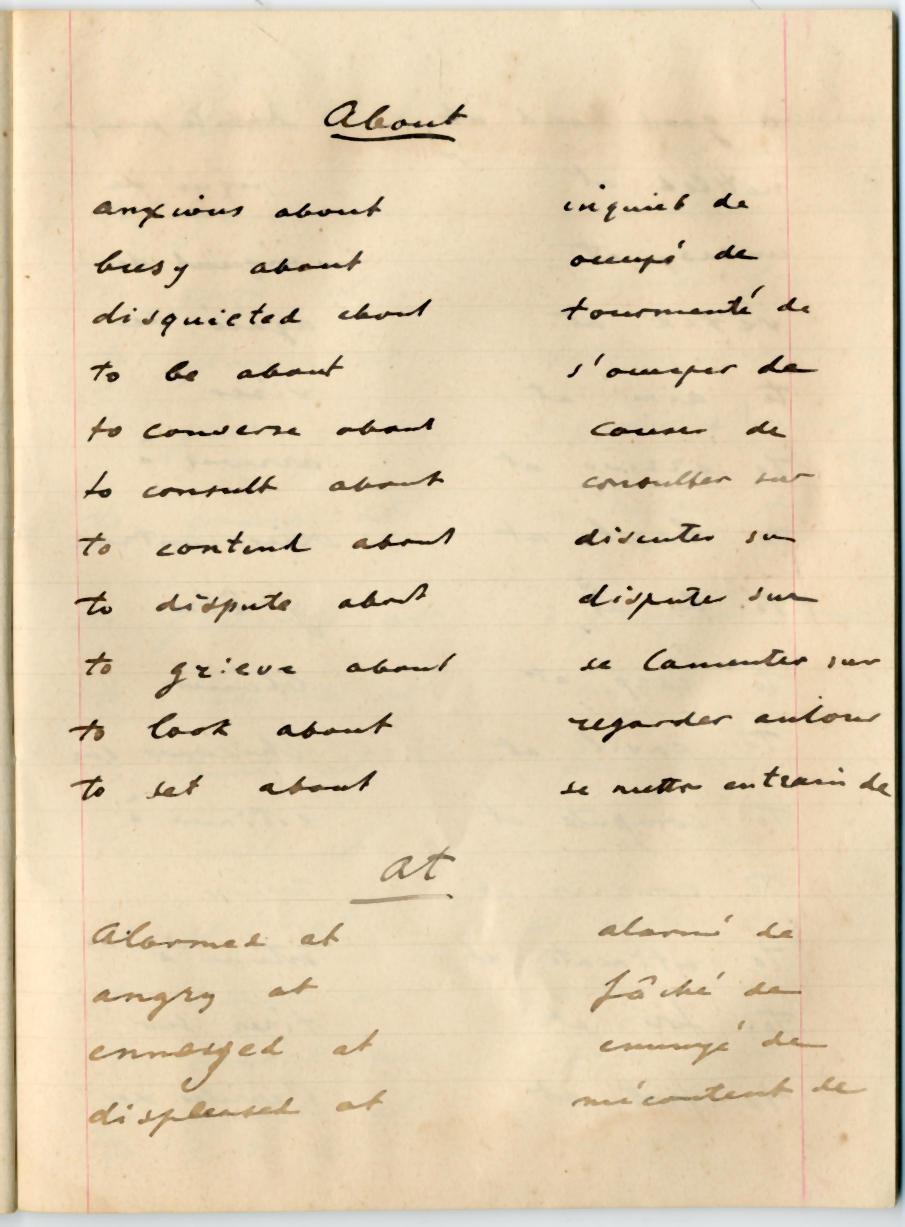 About
anxious about inquiet de
busy about occupé de
disquieted about tourmenté de
to be about s'occuper de
to converse about causer de
to consult about consulter sur
to contend about discuter sur
to dispute about disputer sur
to grieve about se lamenter sur
to look about regarder autour
to set about se mettre entrain de
At
Alarmed at alarmé de
angry at fâché de
at ennuyé de
displeased at mécontent de